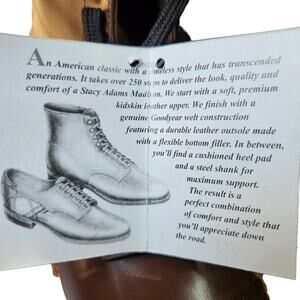 An American classic with a timeless style that has transcended
generations. It takes over 250 steps to deliver the look, quality and
comfort of a Stacy Adams Madison. We start with a soft, premium
kidskin leather upper. We finish with a
genuine Goodyear welt construction
featuring a durable leather outsole made
with a flexible bottom filler. In between,
you'll find a cushioned heel pad
and a steel shank for
maximum support.
The result is a
perfect combination
of comfort and style that
you'll appreciate down
the road.